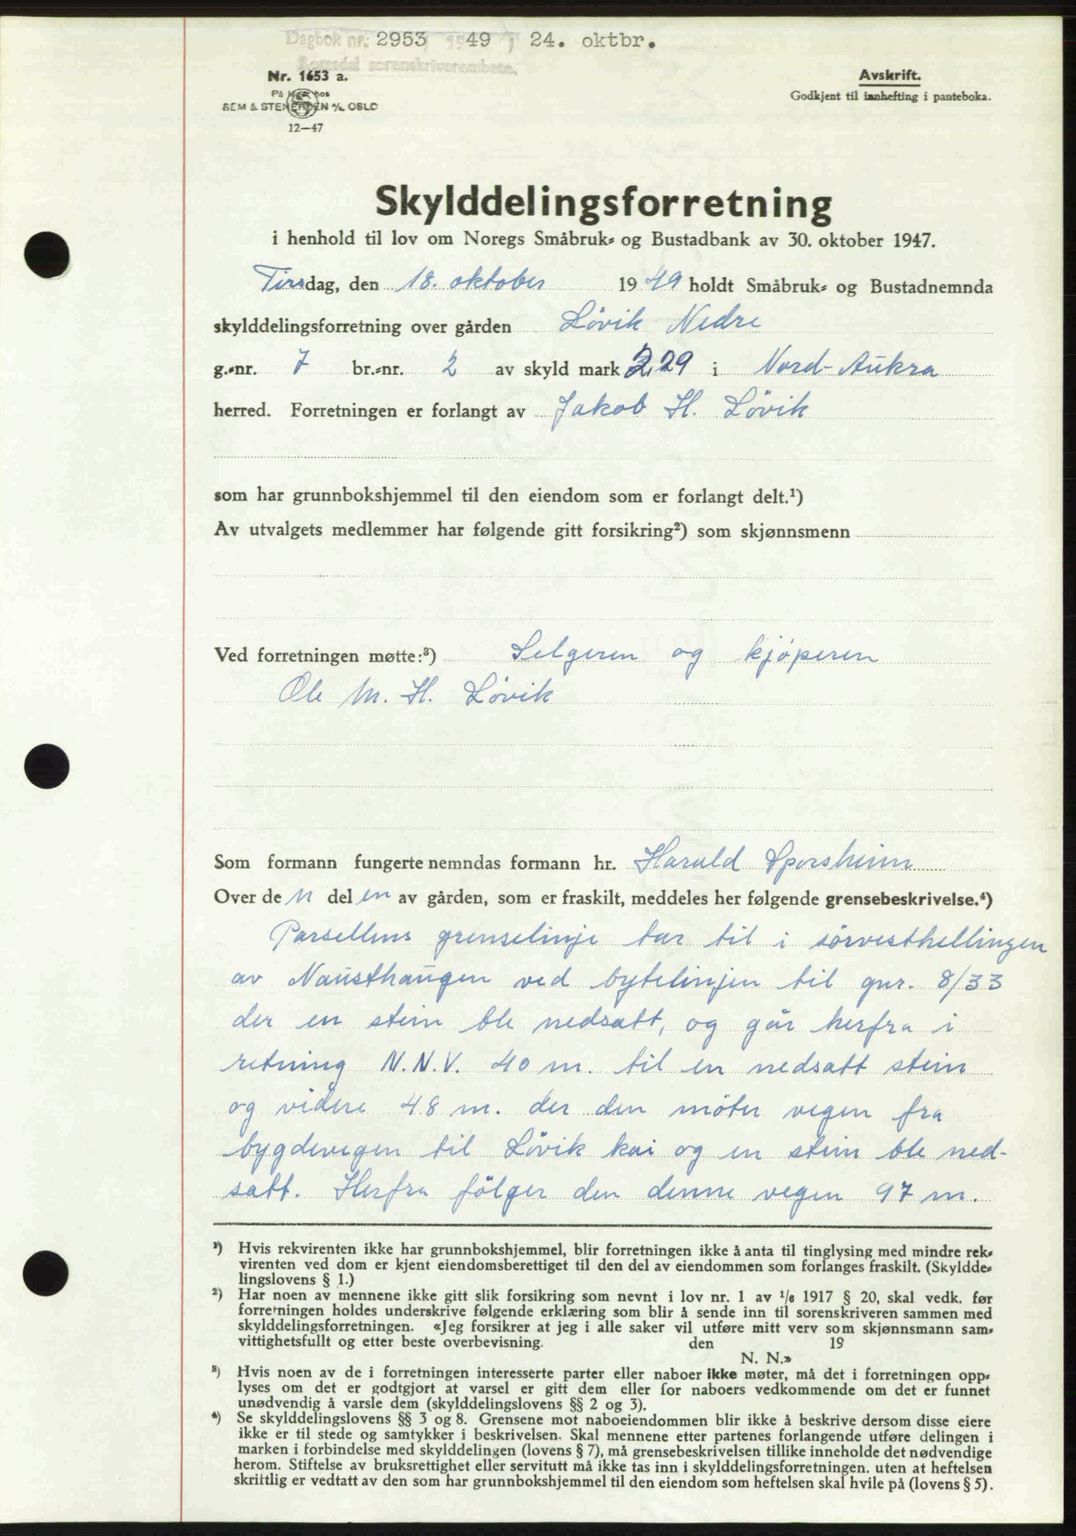 Dagbok nr. 2953 1949 24. oktbr.
Romsdal sorenskriverembete.
Nr. 1653 a.
På lager hos
SEM & STENERSEN A/S, OSLO
12—47
Avskrift.
Godkjent til innhefting i panteboka.
Skylddelingsforretning
i henhold til lov om Noregs Småbruk- og Bustadbank av 30. oktober 1947.
Tirsdag, den 18. oktober 1949 holdt Småbruk- og Bustadnemnda
skylddelingsforretning over gården Løvik Nedre
g.-nr. 7 br.-nr. 2 av skyld mark 2,29 i Nord-Aukra
herred. Forretningen er forlangt av Jakob H. Løvik
som har grunnbokshjemmel til den eiendom som er forlangt delt.¹)
Av utvalgets medlemmer har følgende gitt forsikring²) som skjønnsmenn
Ved forretningen møtte:³) Selgeren og kjöperen
Ole M. H. Lövik
Som formann fungerte nemndas formann hr. Harald Sporsheim
Over den delen av gården, som er fraskilt, meddeles her følgende grensebeskrivelse.⁴)
Parsellens grenselinje tar til i sörvesthellingen
av Nausthaugen ved bytelinjen til gnr. 8/33
der en stein ble nedsatt, og går herfra i
retning N.N.V. 40 m. til en nedsatt stein
og videre 48 m. der den möter vegen fra
bygdevegen til Lövik kai og en stein ble ned-
satt. Herfra fölger den denne vegen 97 m.
¹) Hvis rekvirenten ikke har grunnbokshjemmel, blir forretningen ikke å anta til tinglysing med mindre rek-
virenten ved dom er kjent eiendomsberettiget til den del av eiendommen som forlanges fraskilt. (Skyldde-
lingslovens § 1.)
²) Har noen av mennene ikke gitt slik forsikring som nevnt i lov nr. 1 av ¹/₆ 1917 § 20, skal vedk. før
forretningen holdes underskrive følgende erklæring som blir å sende inn til sorenskriveren sammen med
skylddelingsforretningen. «Jeg forsikrer at jeg i alle saker vil utføre mitt verv som skjønnsmann sam-
vittighetsfullt og etter beste overbevisning. den 19
N. N.»
³) Hvis noen av de i forretningen interesserte parter eller naboer ikke møter, må det i forretningen opp-
lyses om det er godtgjort at varsel er gitt dem eller for naboers vedkommende om det er funnet
unødvendig å varsle dem (skylddelingslovens §§ 2 og 3).
⁴) Se skylddelingslovens §§ 3 og 8. Grensene mot naboeiendommen blir ikke å beskrive dersom disse eiere
ikke er til stede og samtykker i beskrivelsen. Skal mennene etter partenes forlangende utføre delingen i
marken i forbindelse med skylddelingen (lovens § 7), må grensebeskrivelsen tillike inneholde det nødvendige
herom. Stiftelse av bruksrettighet eller servitutt må ikke tas inn i skylddelingsforretningen, uten at heftelsen
skriftlig er vedtatt av den som har grunnbokshjemmel til den eiendom som heftelsen skal hvile på (lovens § 5).